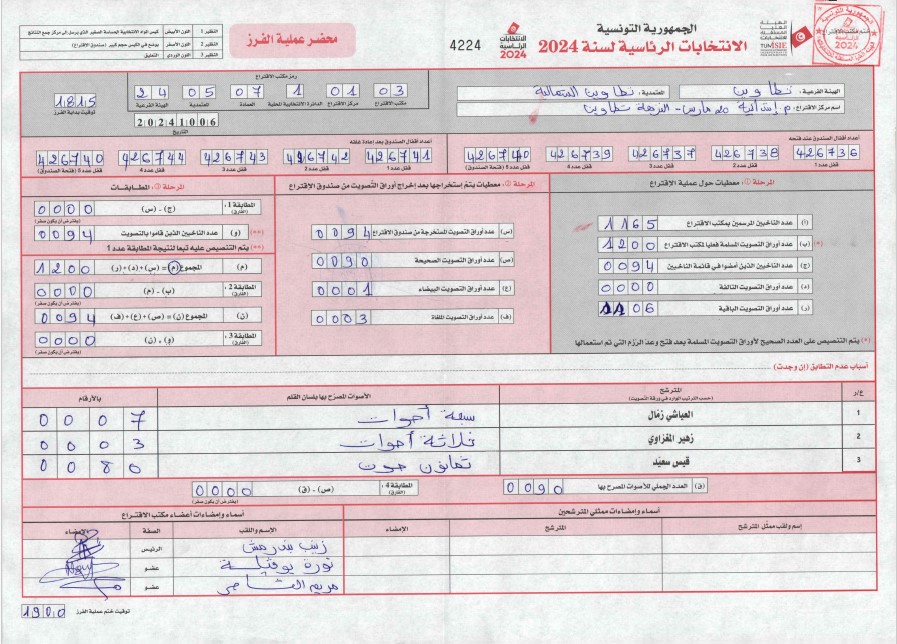 الجمهورية التونسية
الانتخابات الرئاسية لسنة 2024
الانتخابات الرئاسية 2024
4224
محضر عملية الفرز
النظير 1 اللون الأبيض
النظير 2 اللون الأزرق يوضع في الكيس حجم كبير (صندوق الاقتراع)
النظير 3 اللون الوردي التعليق
الهيئة الفرعية: تطاوين المعتمدية: تطاوين الشمالية
اسم مركز الاقتراع:
رمز مكتب الاقتراع
03 01 1 07 05 24
مكتب الاقتراع مركز الاقتراع الدائرة الانتخابية المحلية العمادة المعتمدية الهيئة الفرعية
1815
توقيت بداية الفرز
20241006
التاريخ
أعداد أقفال الصندوق عند فتحه
426736 426738 426737 426739 426740
قفل عدد 1 قفل عدد 2 قفل عدد 3 قفل عدد 4 قفل عدد 5 (فتحة الصندوق)
أعداد أقفال الصندوق بعد إعادة غلقه
426741 426742 426743 426744 426740
قفل عدد 1 قفل عدد 2 قفل عدد 3 قفل عدد 4 قفل عدد 5 (فتحة الصندوق)
المرحلة ①: معطيات حول عملية الاقتراع
(أ) عدد الناخبين المرسمين بمكتب الاقتراع 1165
(ب) عدد أوراق التصويت المسلمة فعليا لمكتب الاقتراع 1200 (*)
(ج) عدد الناخبين الذين أمضوا في قائمة الناخبين 0094
(د) عدد أوراق التصويت التالفة 0000
(ر) عدد أوراق التصويت الباقية 1106
(*) يتم التنصيص على العدد الصحيح لأوراق التصويت المسلمة بعد فتح وعد الرزم التي تم استعمالها
المرحلة ②: معطيات يتم إستخراجها بعد إخراج أوراق التصويت من صندوق الاقتراع
(س) عدد أوراق التصويت المستخرجة من صندوق الاقتراع 0094
(ص) عدد أوراق التصويت الصحيحة 0090
(ع) عدد أوراق التصويت البيضاء 0001
(ف) عدد أوراق التصويت الملغاة 0003
المرحلة ③: المطابقات
المطابقة 1: (الفارق) (ج) - (س) 0000
(يفترض أن يكون صفر)
(و) عدد الناخبين الذين قاموا بالتصويت 0094 (**)
(**) يتم التنصيص عليه تبعا لنتيجة المطابقة عدد 1
(م) المجموع (م) = (س) + (د) + (ر) 1200
المطابقة 2: (الفارق) (ب) - (م) 0000
(يفترض أن يكون صفر)
(ن) المجموع (ن) = (ص) + (ع) + (ف) 0094
المطابقة 3: (الفارق) (و) - (ن) 0000
(يفترض أن يكون صفر)
أسباب عدم التطابق (إن وجدت)
ع/ر المترشح الأصوات المصرح بها بلسان القلم بالأرقام
(حسب الترتيب الوارد في ورقة التصويت)
1 العياشي زمال سبعة أصوات 0007
2 زهير المغزاوي ثلاثة أصوات 0003
3 قيس سعيد ثمانون صوت 0080
(ق) العدد الجملي للأصوات المصرح بها 0090
المطابقة 4: (الفارق) (ص) - (ق) 0000
(يفترض أن يكون صفر)
أسماء وإمضاءات ممثلي المترشحين
إسم ولقب ممثل المترشح المترشح الإمضاء
أسماء وإمضاءات أعضاء مكتب الاقتراع
الإسم واللقب الصفة الإمضاء
الرئيس
عضو
عضو
توقيت ختم عملية الفرز 1900